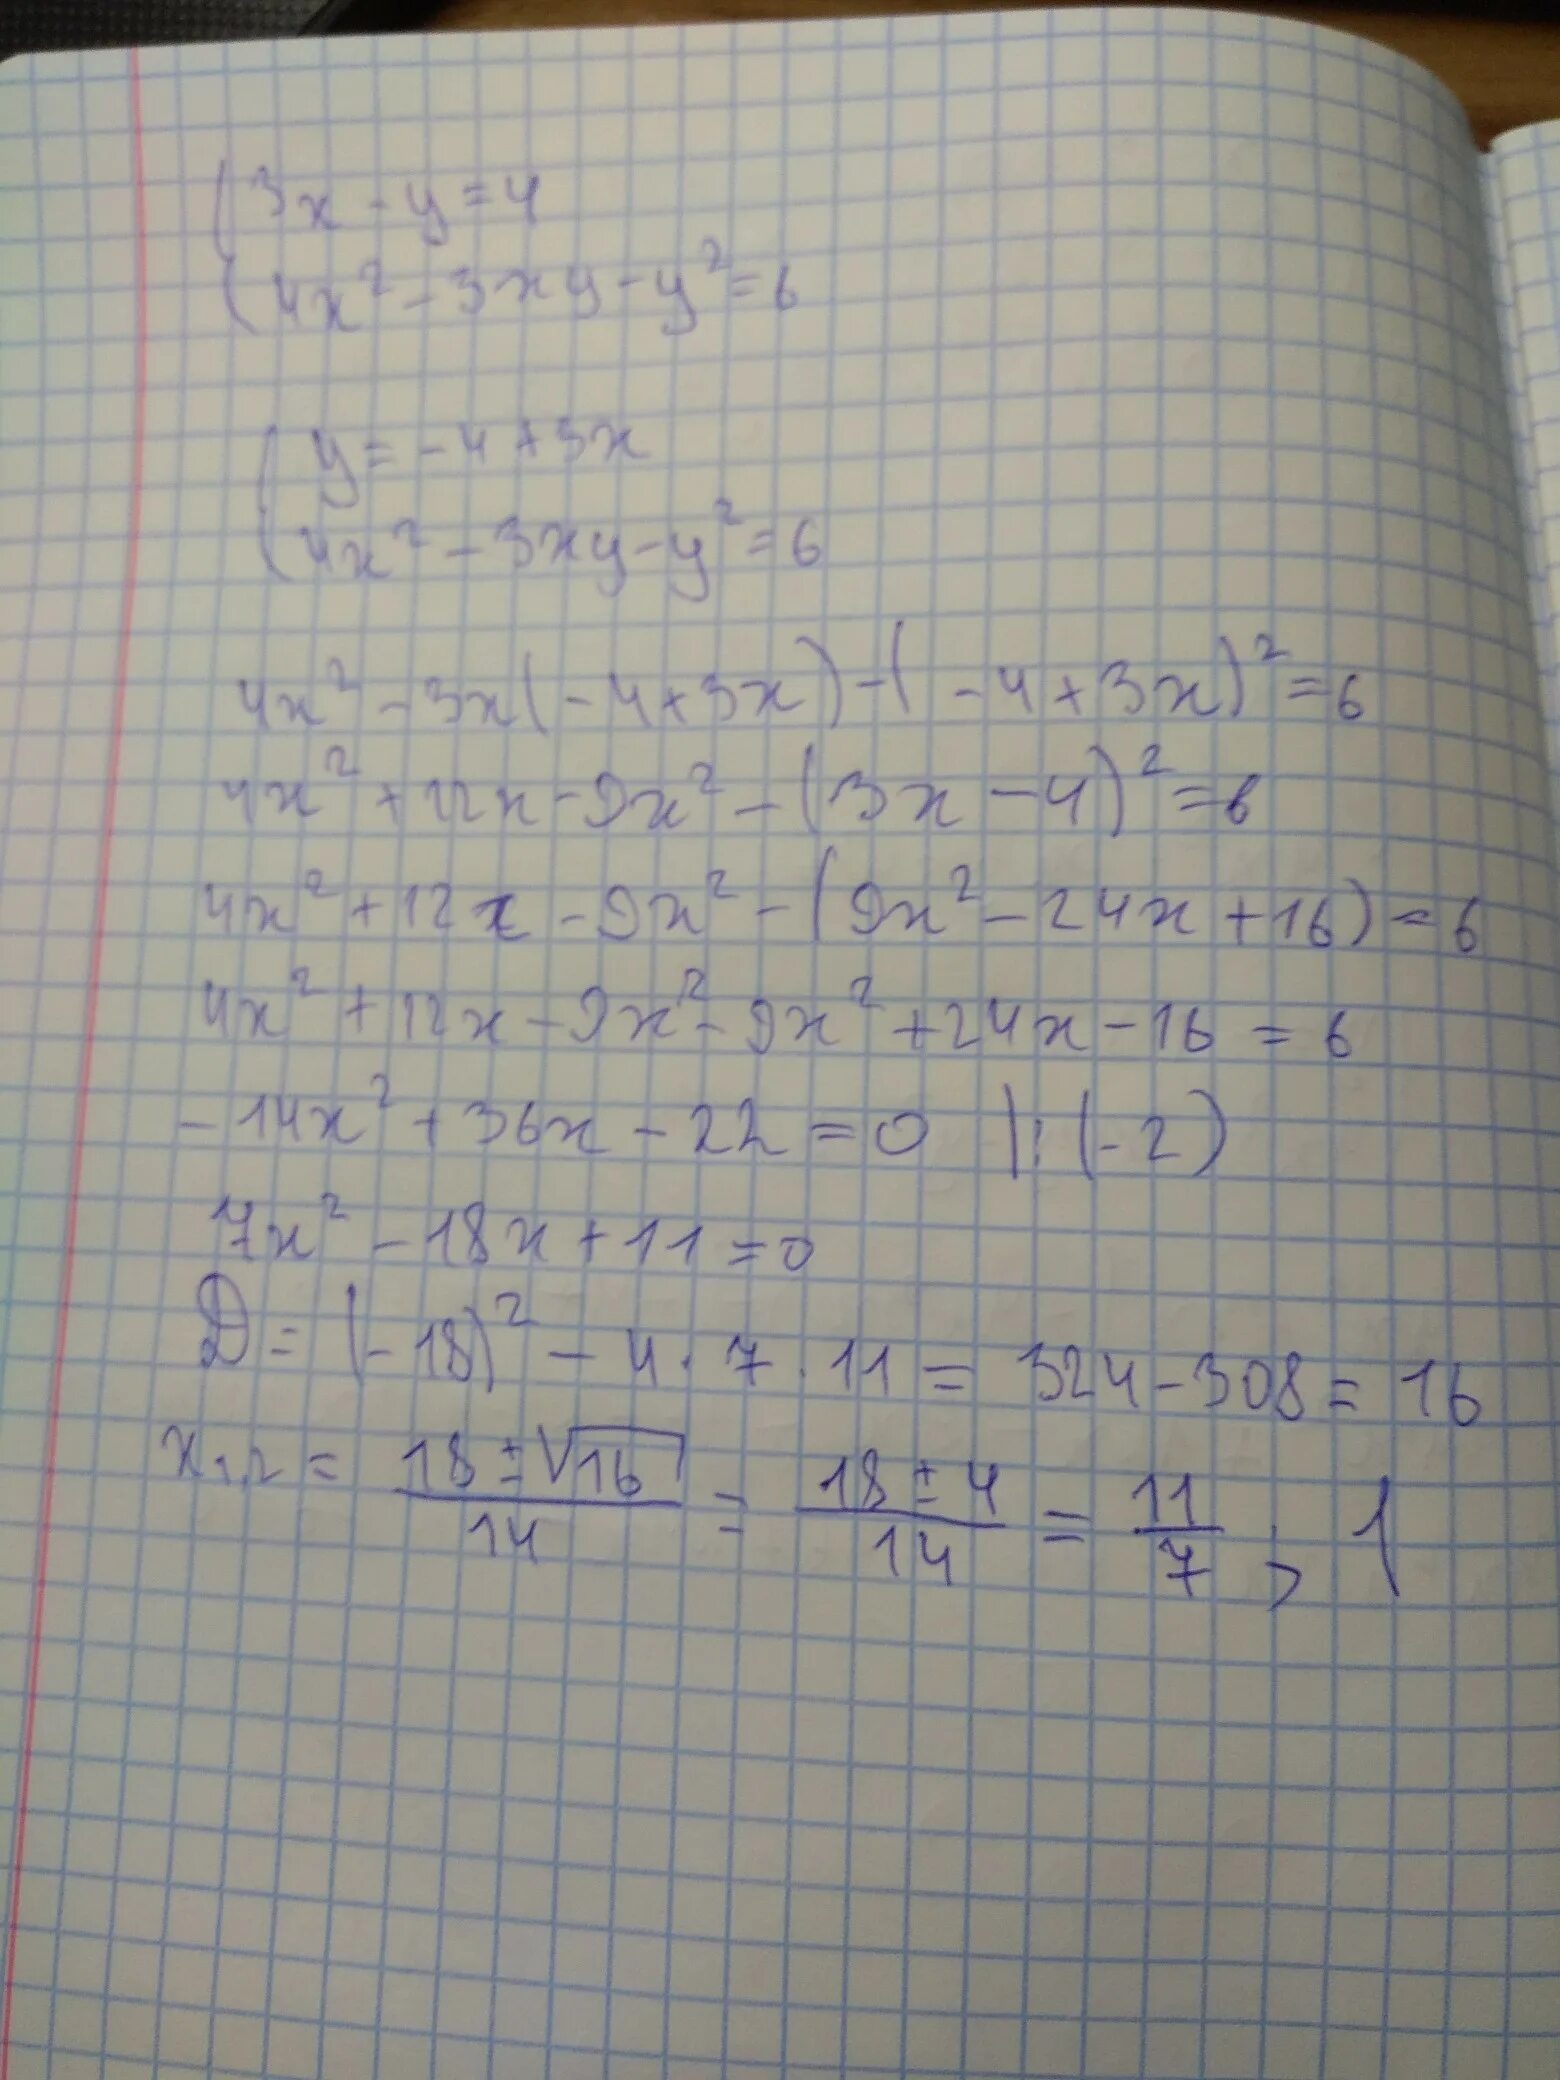 {3x - y = 4
{4x² - 3xy - y² = 6
{y = -4 + 3x
{4x² - 3xy - y² = 6
4x² - 3x(-4 + 3x) - (-4 + 3x)² = 6
4x² + 12x - 9x² - (3x - 4)² = 6
4x² + 12x - 9x² - (9x² - 24x + 16) = 6
4x² + 12x - 9x² - 9x² + 24x - 16 = 6
-14x² + 36x - 22 = 0 |:(-2)
7x² - 18x + 11 = 0
D = (-18)² - 4·7·11 = 324 - 308 = 16
x₁,₂ = (18 ± √16)/14 = (18 ± 4)/14 = 11/7; 1